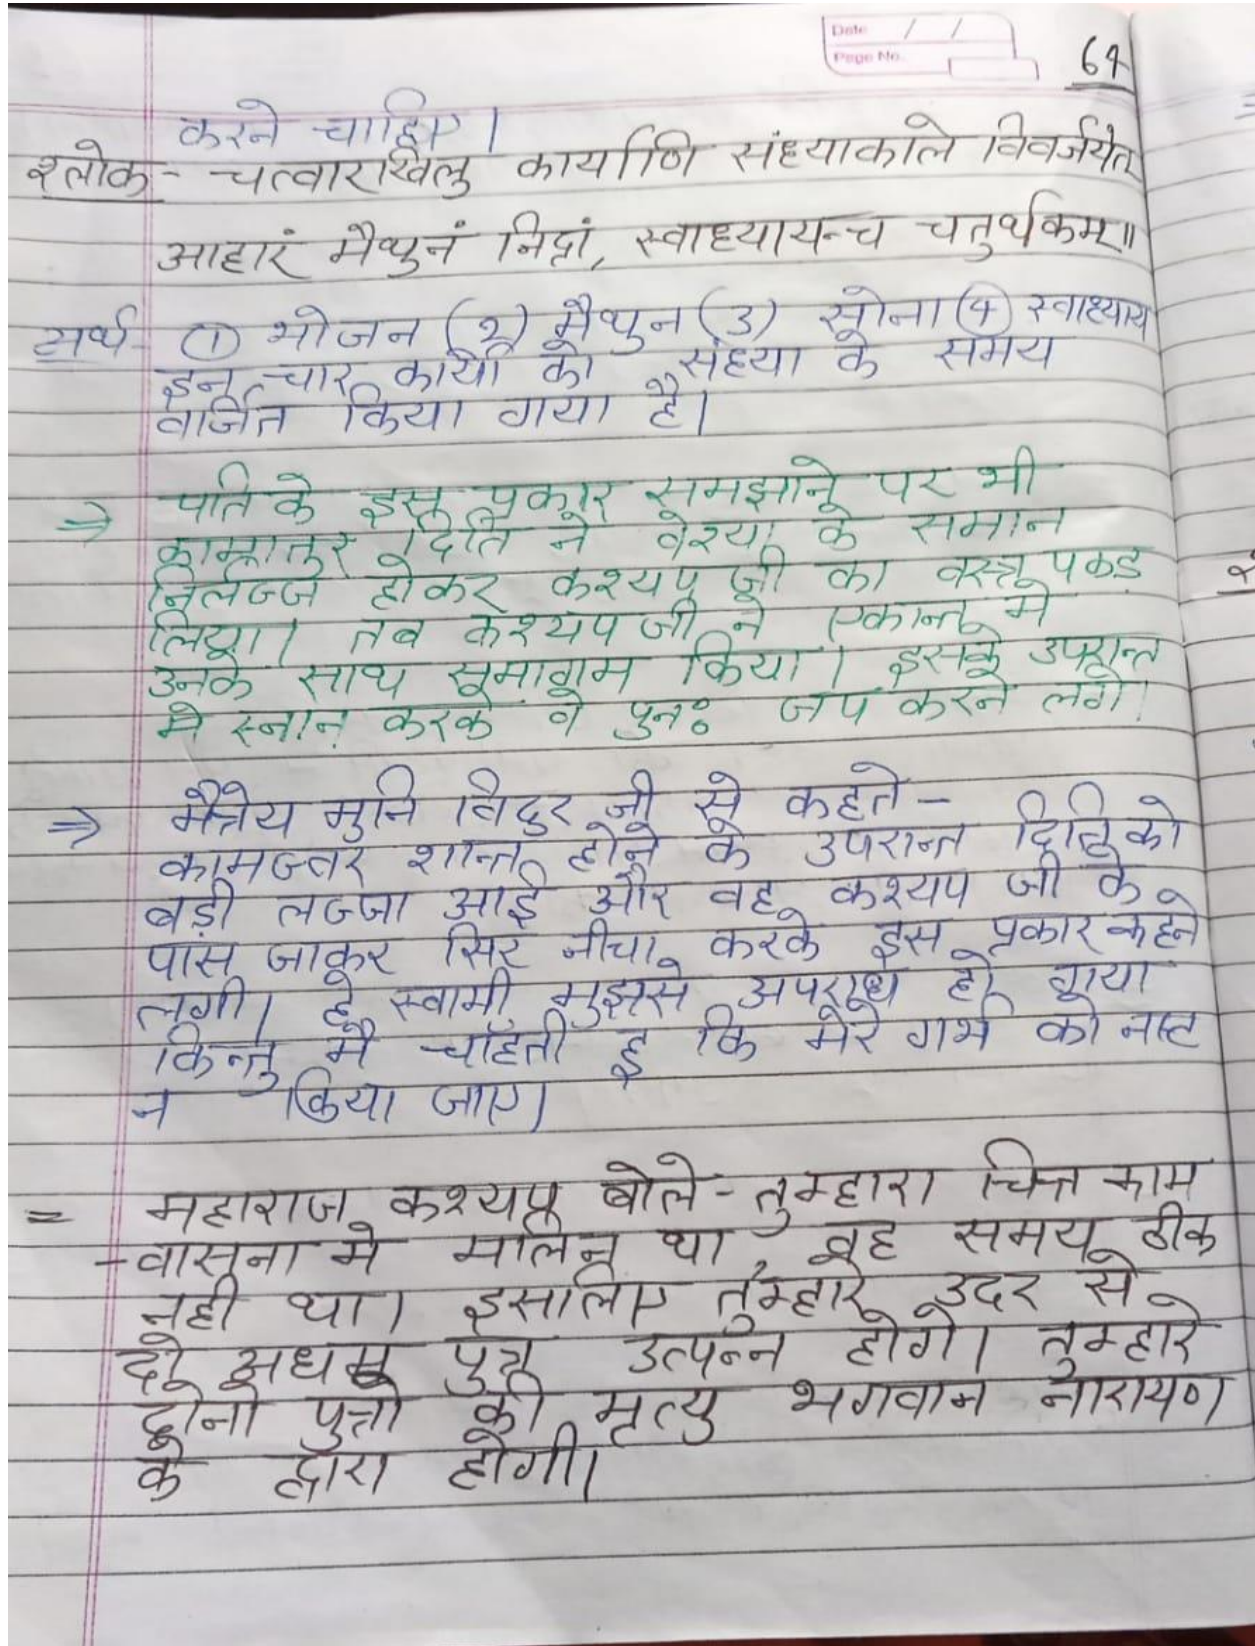 Date / /
Page No.
64
करने चाहिए।
श्लोक - चत्वारखिलु कार्याणि संध्याकाले विवर्जयेत
आहारं मैथुनं निद्रां, स्वाध्यायन्च चतुर्थकम्॥
अर्थ - ① भोजन (२) मैथुन (3) सोना ④ स्वाध्याय
इन चार कार्यो को संध्या के समय
वर्जित किया गया है।
⇒ पति के इस प्रकार समझाने पर भी
कामातुर दिति ने वेश्या के समान
निर्लज्ज होकर कश्यप जी का वस्त्र पकड़
लिया। तब कश्यप जी ने एकान्त मे
उनके साथ समागम किया। इसके उपरान्त
मे स्नान करके वे पुनः जप करने लगे।
⇒ मैत्रेय मुनि विदुर जी से कहते -
कामज्वर शान्त होने के उपरान्त दिति को
बड़ी लज्जा आई और वह कश्यप जी के
पास जाकर सिर नीचा करके इस प्रकार कहने
लगी। हे स्वामी मुझसे अपराध हो गया
किन्तु मै चाहती हु कि मेरे गर्भ को नष्ट
न किया जाए।
= महाराज कश्यप बोले - तुम्हारा चित्त काम
-वासना मे मलिन था, वह समय ठीक
नही था। इसलिए तुम्हारे उदर से
दो अधम पुत्र उत्पन्न होगे। तुम्हारे
दोनो पुत्रो की मृत्यु भगवान नारायण
के द्वारा होगी।